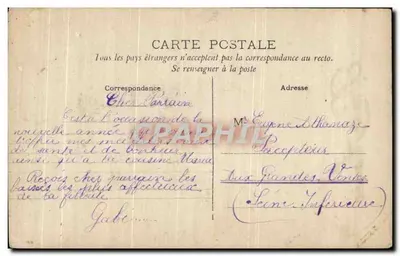 CARTE POSTALE
Tous les pays étrangers n'acceptent pas la correspondance au recto.
Se renseigner à la poste
Correspondance
Adresse
Cher Parrain
C'est à l'occasion de la
nouvelle année
mes
santé et de
ainsi qu'à la cousine
Reçois cher parrain les
baisers les plus affectueux
de la
Gabi
Mr Eugène Athanaze
Percepteur
aux Grandes Ventes
(Seine Inférieure)
CARTHAPHILIC